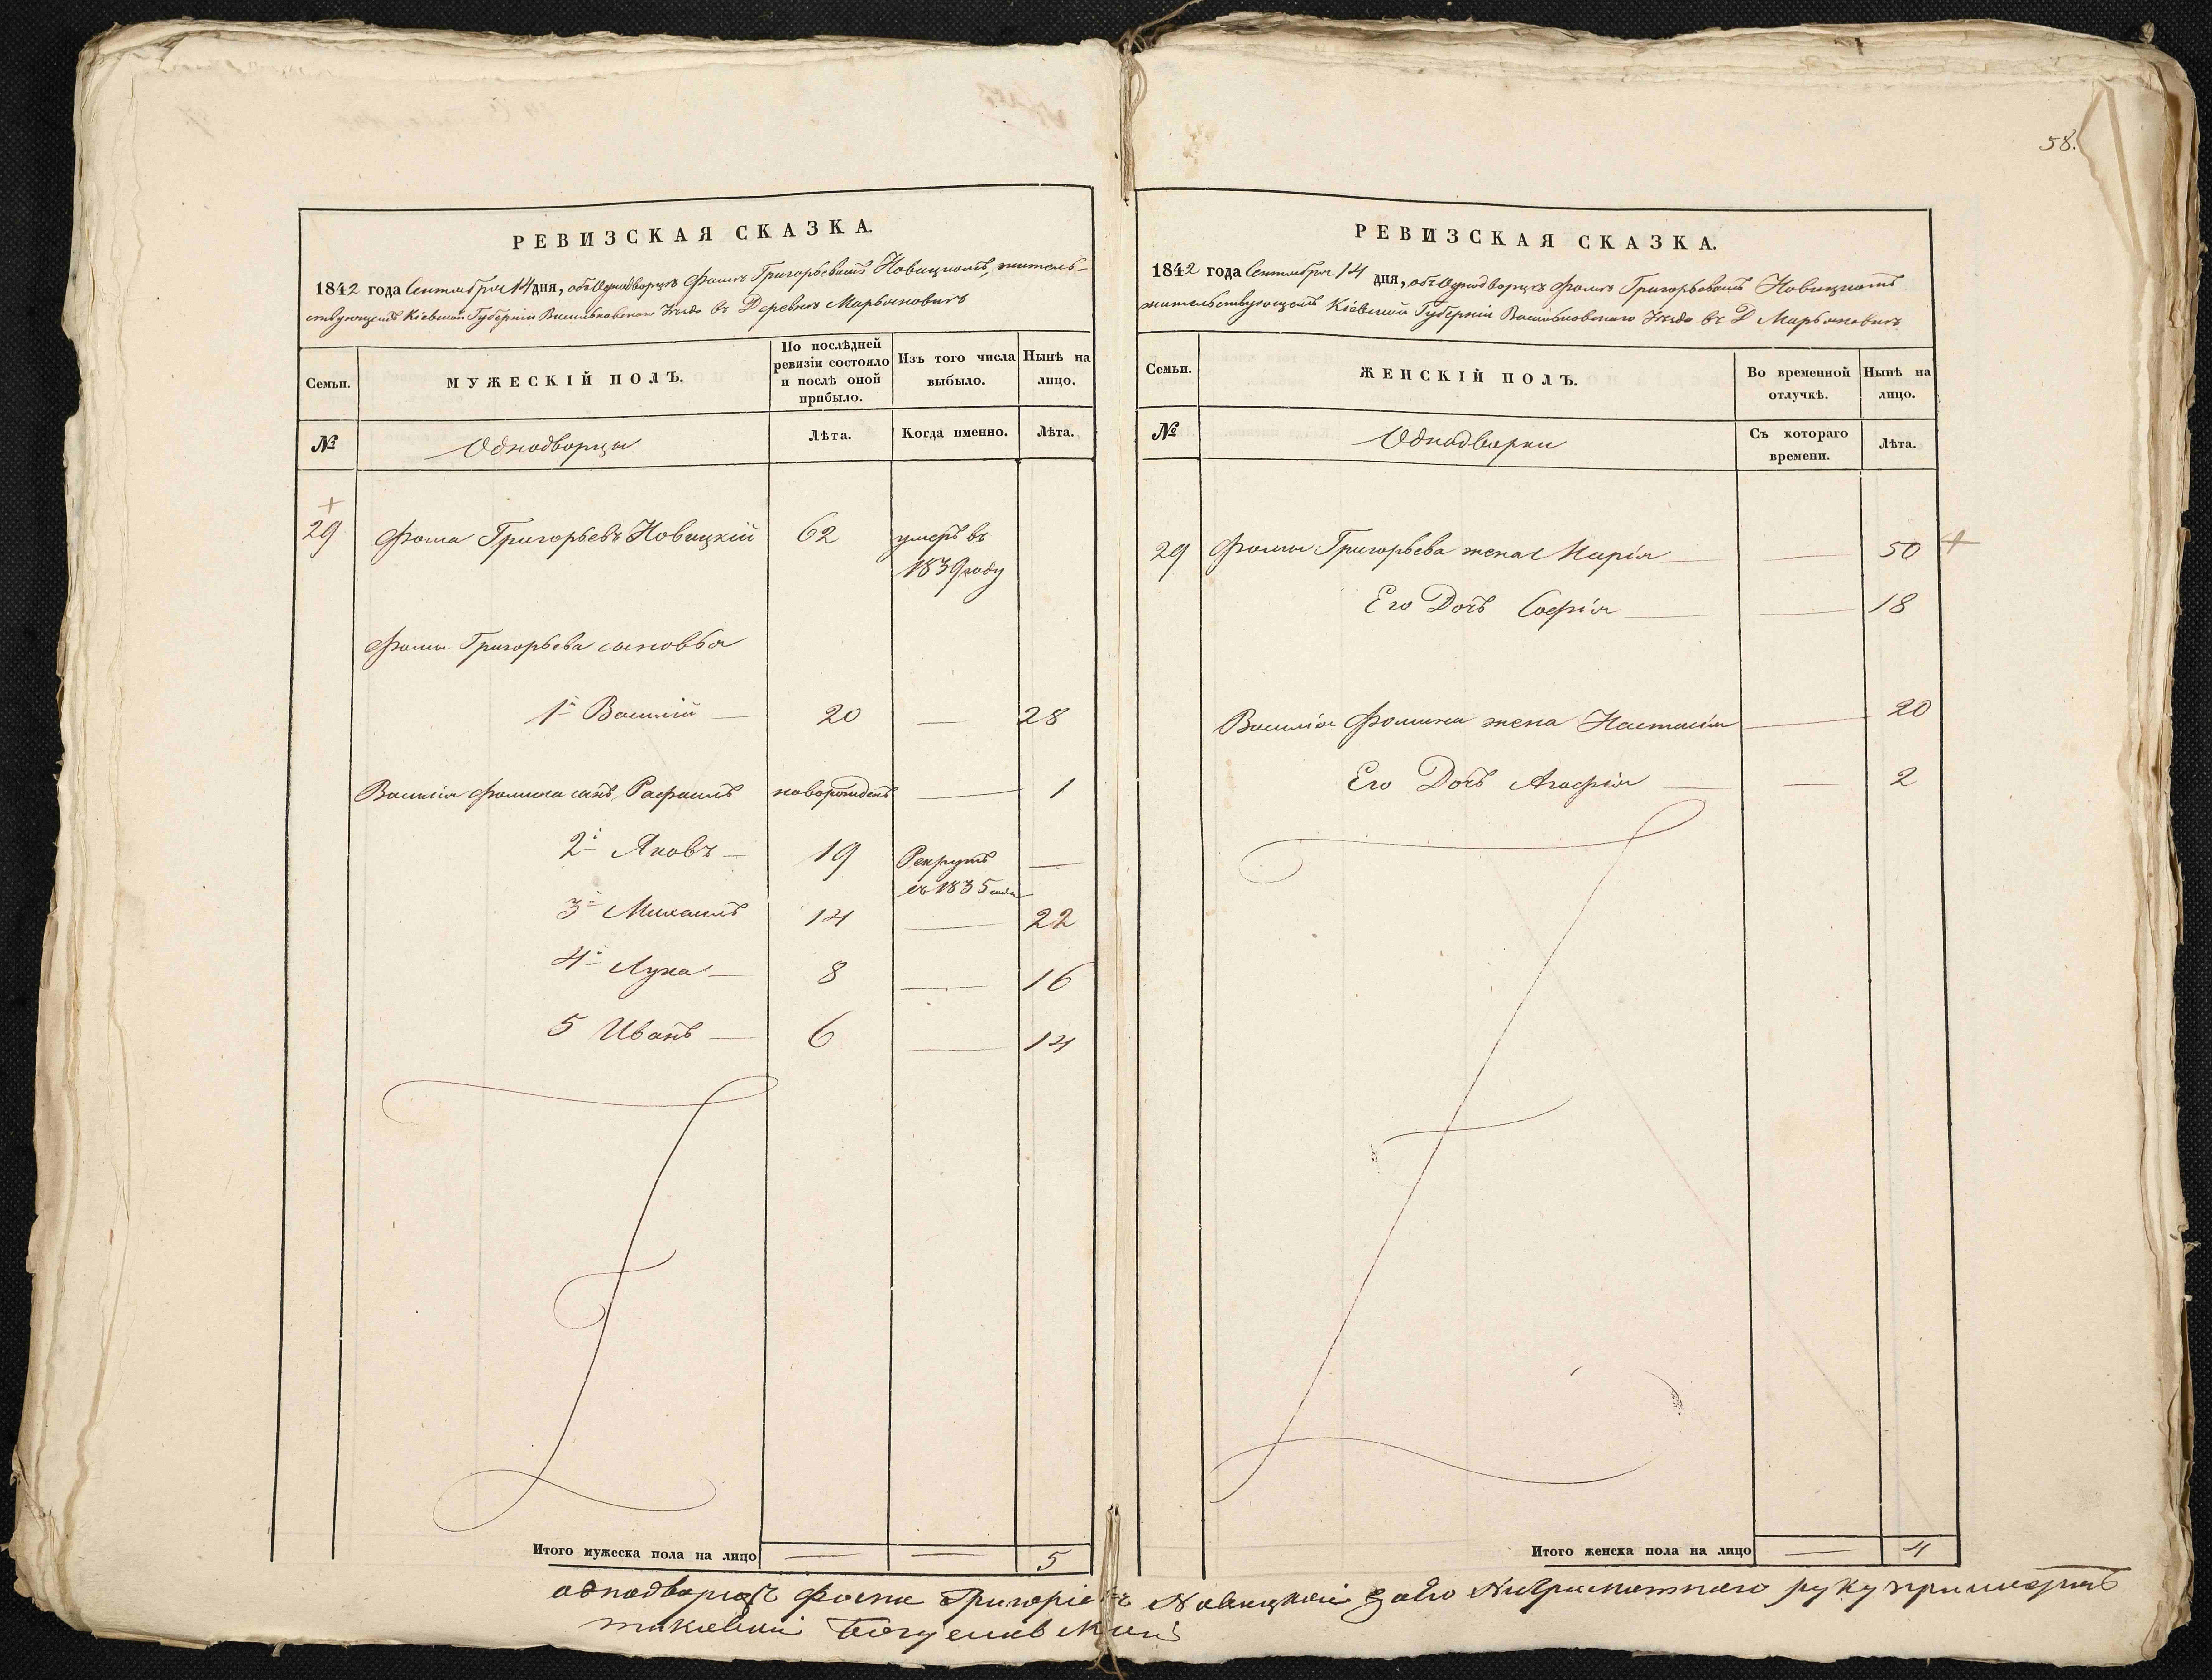 58.
РЕВИЗСКАЯ СКАЗКА.
1842 года Сентября 14 дня, объ Однодворцѣ Фомѣ Григорьевомъ Новицкомъ, житель-
ствующемъ Кіевской Губерніи Васильковскаго Уѣзда въ Деревнѣ Марьяновкѣ
Семьи.
МУЖЕСКІЙ ПОЛЪ.
По послѣдней ревизіи состояло и послѣ оной прибыло.
Изъ того числа выбыло.
Нынѣ на лицо.
№
Однодворцы
Лѣта.
Когда именно.
Лѣта.
29 Фома Григорьевъ Новицкій 62 умеръ въ
1839 году
Фомы Григорьева сыновья
1й Василій — 20 — 28
Василія Фомина сынъ Рафаилъ новорожденъ — 1
2й Яковъ — 19 Рекрутъ —
съ 1835 года
3й Михаилъ 14 — 22
4й Лука — 8 — 16
5 Иванъ — 6 — 14
Итого мужеска пола на лицо — — 5
РЕВИЗСКАЯ СКАЗКА.
1842 года Сентября 14 дня, объ Однодворцѣ Фомѣ Григорьевомъ Новицкомъ
жительствующемъ Кіевской Губерніи Васильковскаго Уѣзда въ Д Марьяновкѣ
Семьи.
ЖЕНСКІЙ ПОЛЪ.
Во временной отлучкѣ.
Нынѣ на лицо.
№
Однодворки
Съ котораго времени.
Лѣта.
29 Фомы Григорьева жена Марія — — 50
Его Дочь Софія — — 18
Василія Фомина жена Настасія — 20
Его Дочь Агафія — — 2
Итого женска пола на лицо — 4
однодворецъ Фома Григоріевъ Новицкій за его Неграмотнаго руку приложилъ